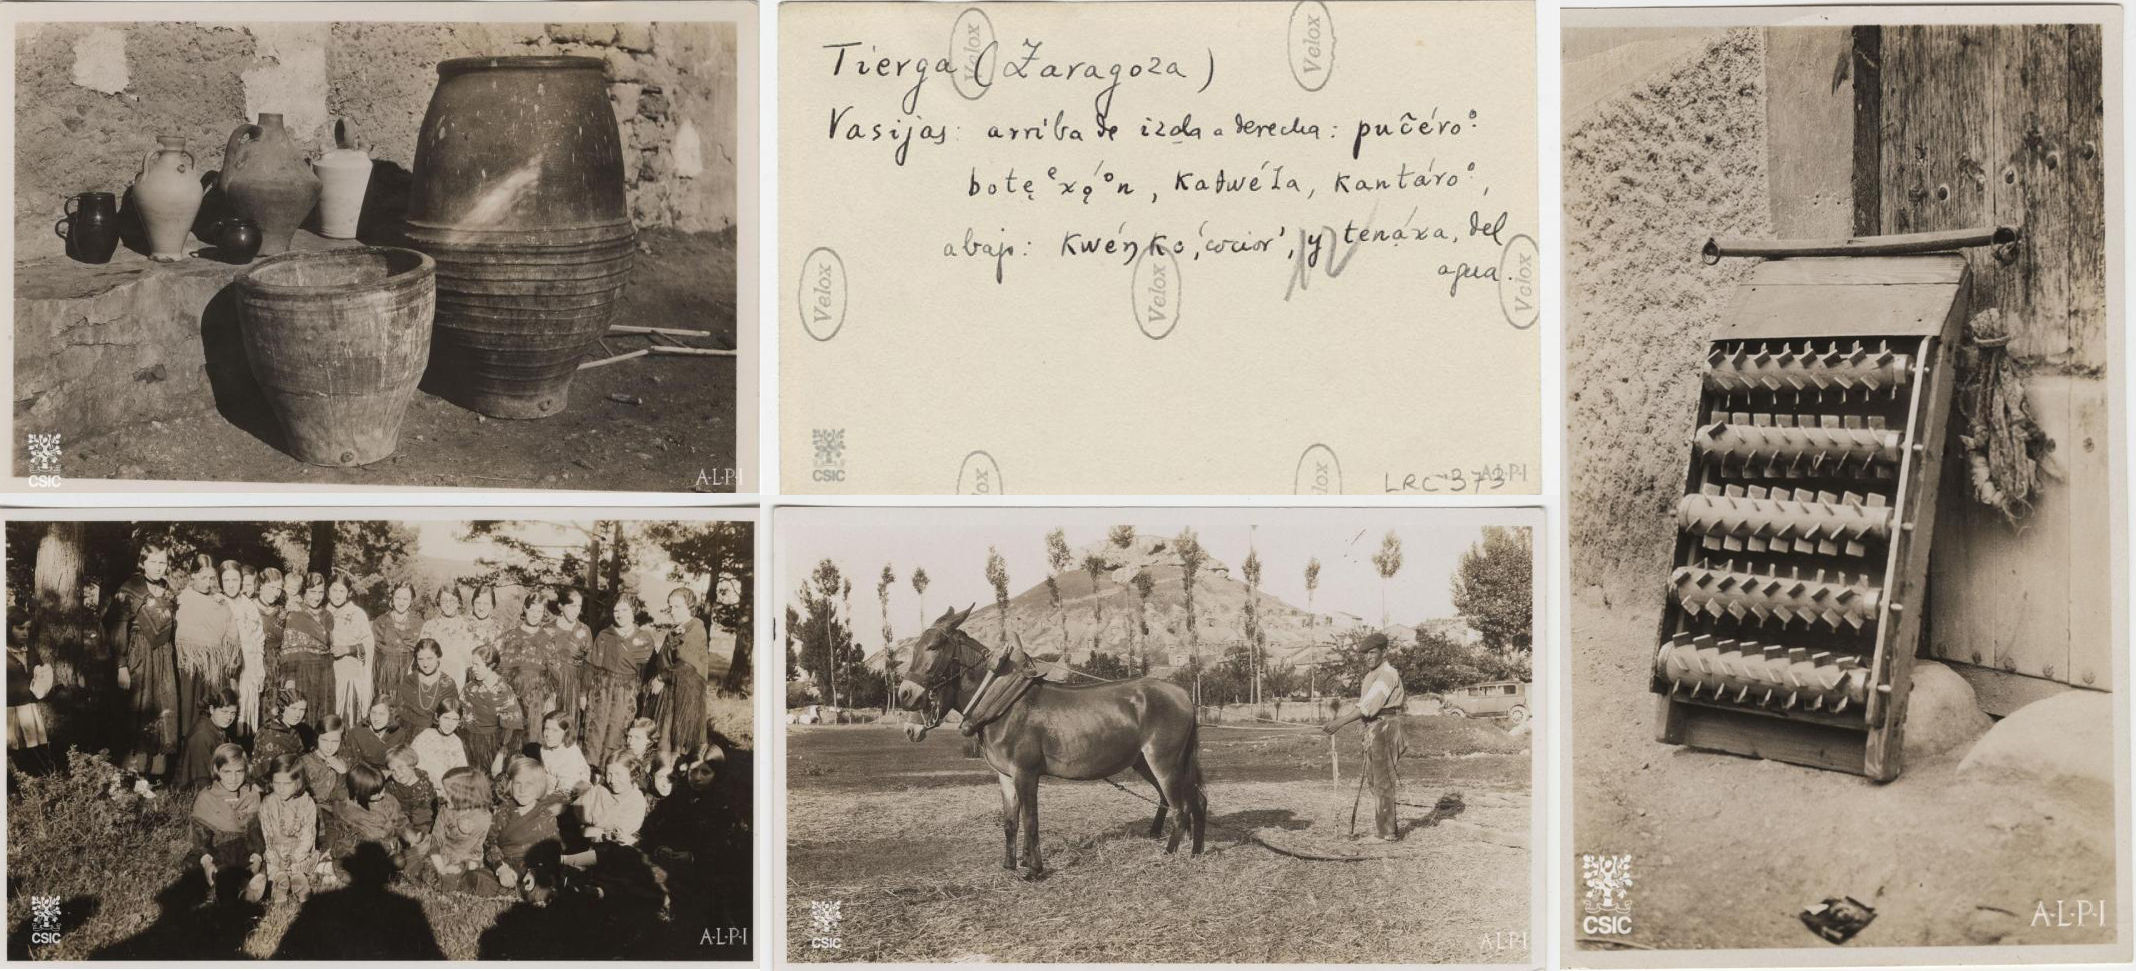 CSIC
A·L·P·I
Tierga (Zaragoza)
Vasijas: arriba de izda a derecha: pučéro:
botẹᵉxọ́ᵒn, Kaθwéla, Kantáro°,
abajo: Kwéŋko, 'cocior', y tenáxa, del
agua.
Velox
Velox
Velox
Velox
Velox
lox
lox
LRC-373
CSIC
A·L·P·I
CSIC
A·L·P·I
CSIC
A·L·P·I
CSIC
A·L·P·I